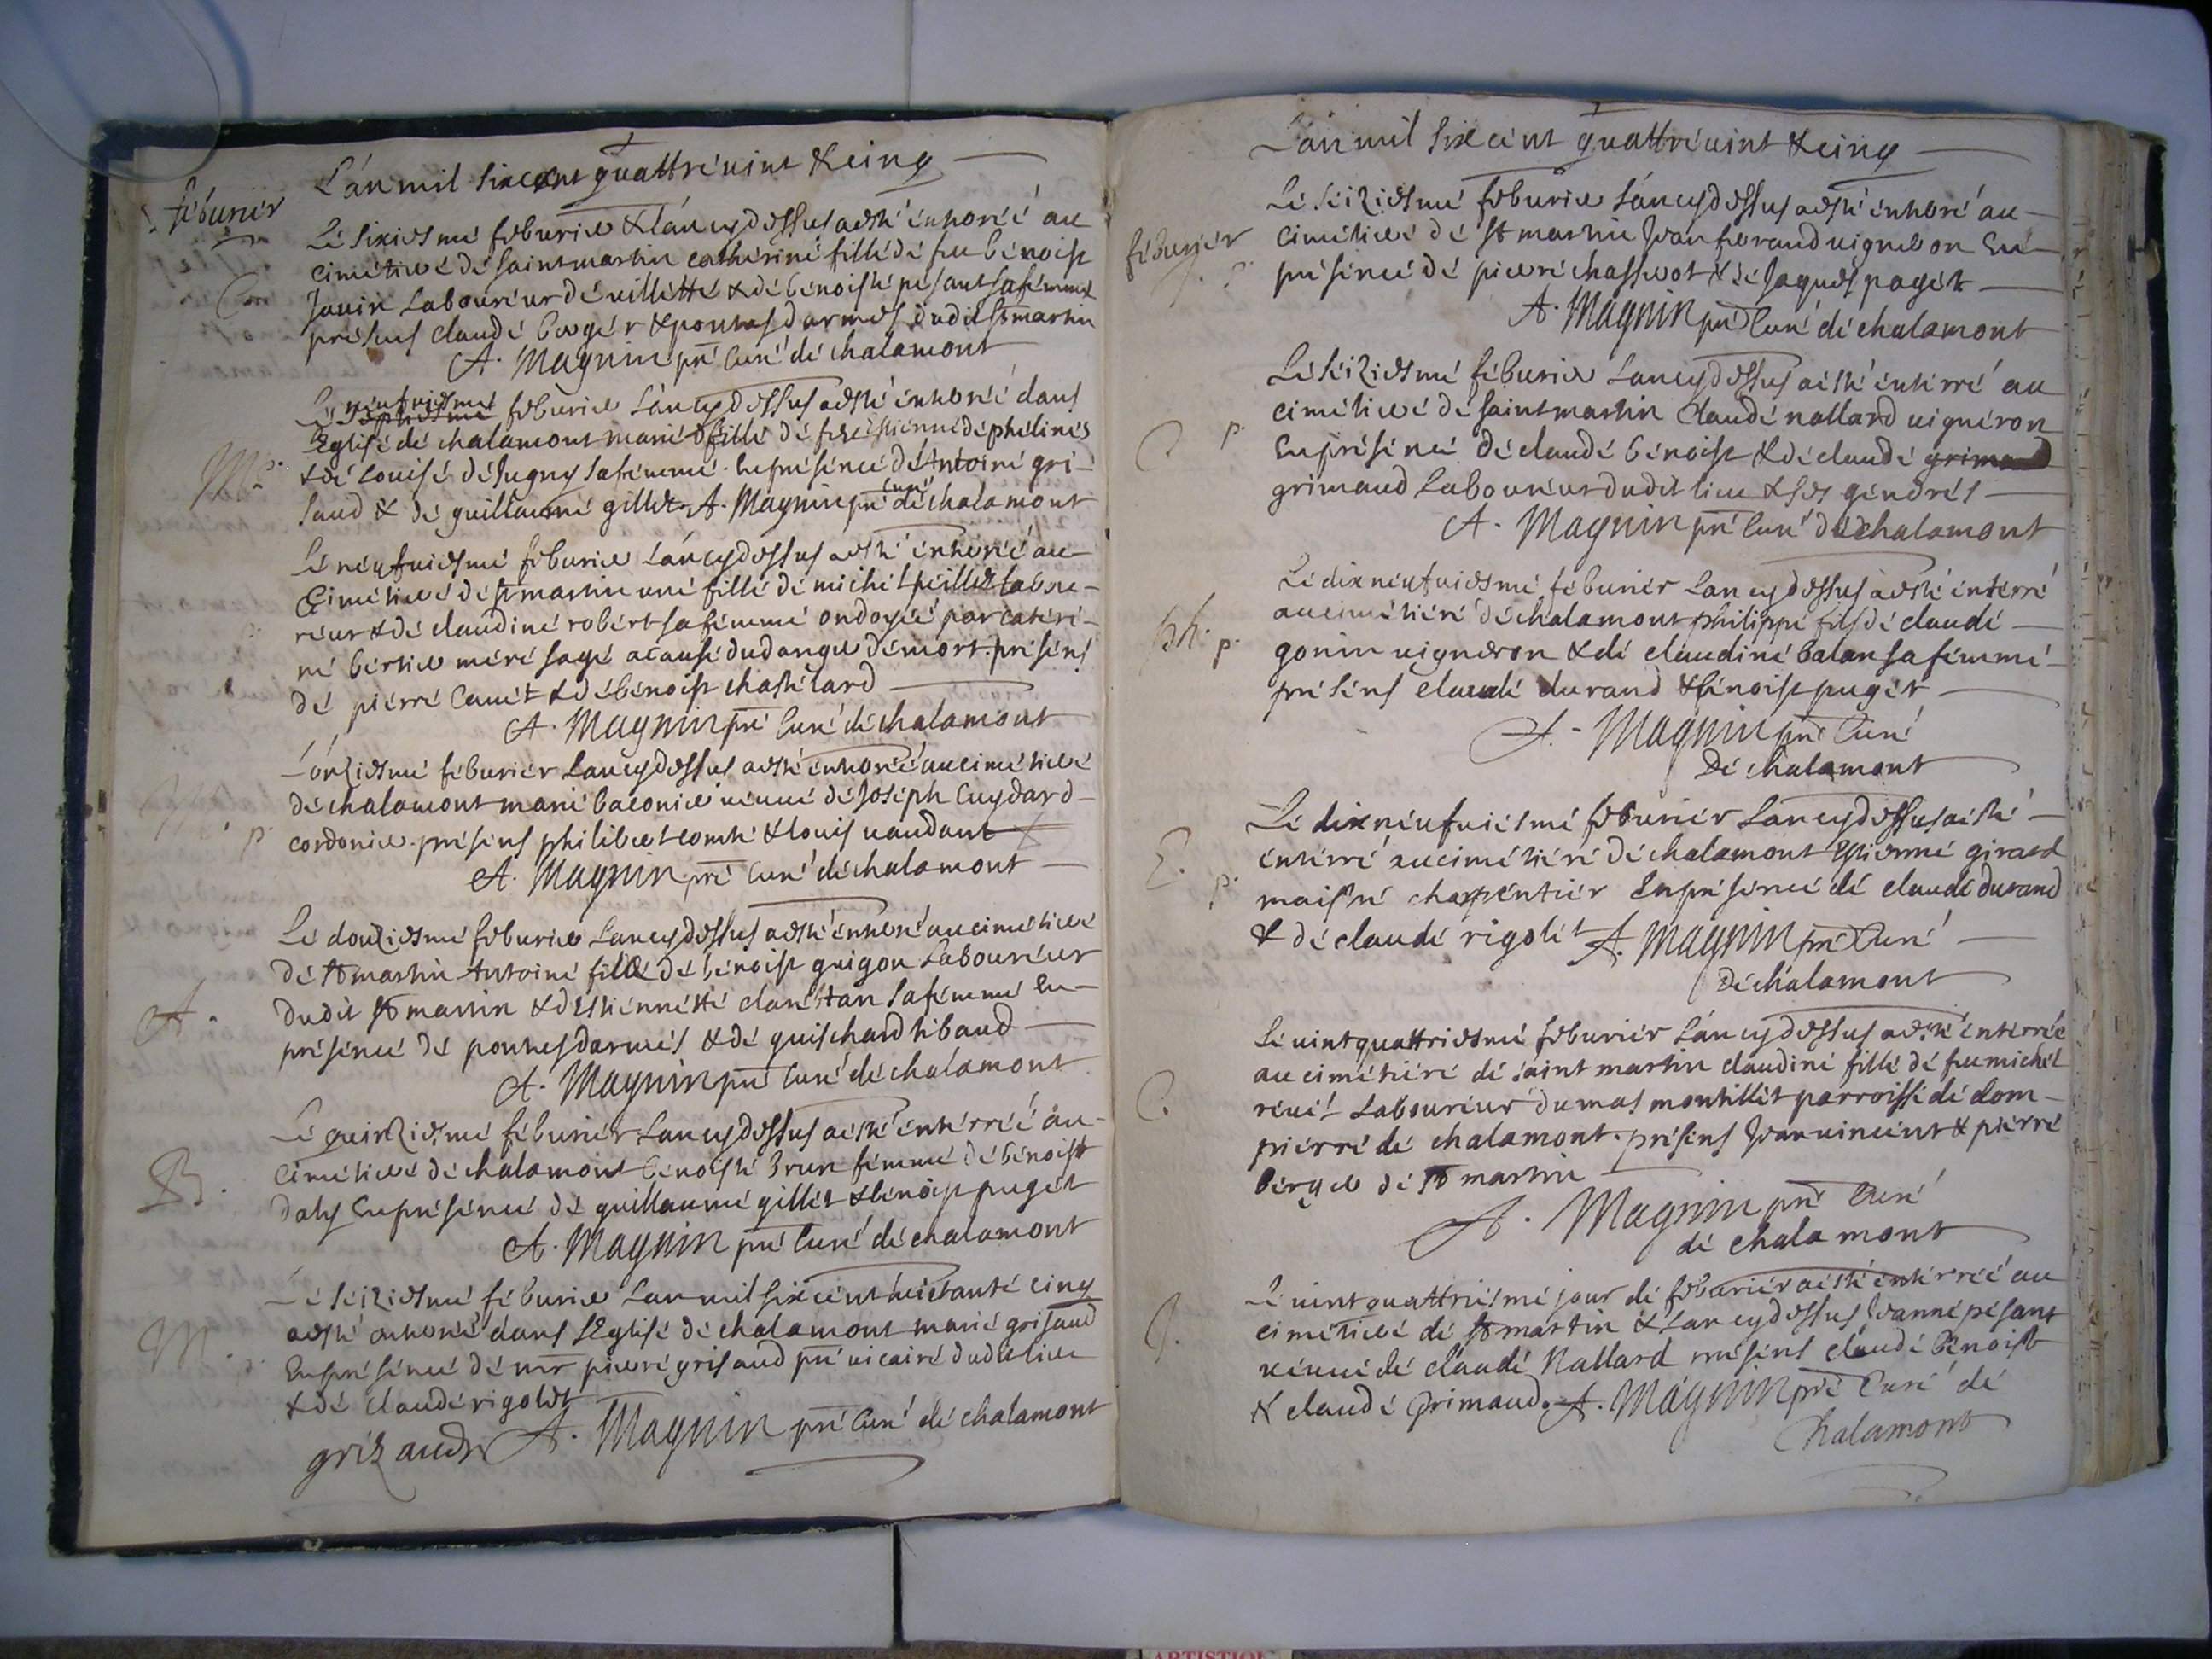 L'an mil six cent quattre vint & cinq
feburier
Le sixiesme feburier & l'an cy dessus a esté enterrée au
cimetiere de saint martin catherine fille de feu benoist
C
Janin Laboureur de villette & de benoiste pesant sa femme
présens claude berger & pontus darmes dudit St martin
A. Magnin pre Curé de chalamont
Le neufuiesme feburier L'an cy dessus a esté enterrée dans
L'Eglise de chalamont marie fille de feu Estienne de phelines
M. p.
& de Louise de Jugny sa femme. En présence de Antoine gri-
saud & de guillaume gillet A. Magnin pre Curé de chalamont
Le neufuiesme feburier L'an cy dessus a esté enterrée au
Cimetiere de St martin une fille de michel peillet labou-
reur & de claudine robert sa femme ondoyée par cateri-
ne bertier mere sage a cause du danger de mort. présens
de pierre Canet & de benoist chastelard
A. Magnin pre Curé de chalamont
L'onziesme feburier L'an cy dessus a esté enterrée au cimetiere
de chalamont marie baconier veuue de Joseph Cuydard
M. p.
cordonier. présens philibert comte & louis vaudant
A. Magnin pre Curé de chalamont
Le douziesme feburier L'an cy dessus a esté enterré au cimetiere
de St martin Antoine fils de benoist guigou Laboureur
A.
dudit St martin & d'Estiennette clarettan sa femme En
présence de pontus darmes & de guischard tibaud
A. Magnin pre Curé de chalamont
Le quinziesme feburier L'an cy dessus a esté enterrée au
B.
Cimetiere de chalamont benoiste brun femme de benoist
daly En présence de guillaume gillet & benoist puget
A. Magnin pre Curé de chalamont
Le seiziesme feburier L'an mil six cent huictante cinq
M. p.
a esté enterrée dans L'Eglise de chalamont marie grisaud
En présence de mr pierre grisaud pre vicaire dudit lieu
& de claude rigolet
grizaud A. Magnin pre Curé de chalamont
L'an mil six cent quattre vint & cinq
Le seiziesme feburier L'an cy dessus a esté enterré au
feburier
cimetiere de St martin Jean ferrand vigneron En
présence de pierre chasserot & de Jaques paget
A. Magnin pre Curé de chalamont
Le seiziesme feburier L'an cy dessus a esté enterré au
cimetiere de saint martin Claude nallard vigneron
C. p.
En présence de claude benoist & de claude grimaud
grimaud Laboureur dudit lieu & ses gendres
A. Magnin pre Curé de chalamont
Le dix neufuiesme feburier L'an cy dessus a esté enterré
au cimetiere de chalamont philippe fils de claude
ph. p.
gonin vigneron & de claudine balan sa femme
présens claude durand & benoist puget
A. Magnin pre Curé
De chalamont
Le dix neufuiesme feburier L'an cy dessus a esté
enterré au cimetiere de chalamont Estienne girard
E. p.
maistre charpentier En présence de claude durand
& de claude rigolet A. Magnin pre Curé
De chalamont
Le vint quattriesme feburier L'an cy dessus a esté enterrée
au cimetiere de saint martin claudine fille de feu michel
C.
reuel Laboureur du mas montillet parroisse de dom-
pierre de chalamont. présens Jean vincent & pierre
berger de St martin
A. Magnin pre Curé
de chalamont
Le vint quattriesme jour de feburier a esté enterrée au
J.
cimetiere de St martin & L'an cy dessus Jeanne pesant
veuue de claude Nallard présens claude benoist
& claude Grimaud. A. Magnin pre Curé de
Chalamont